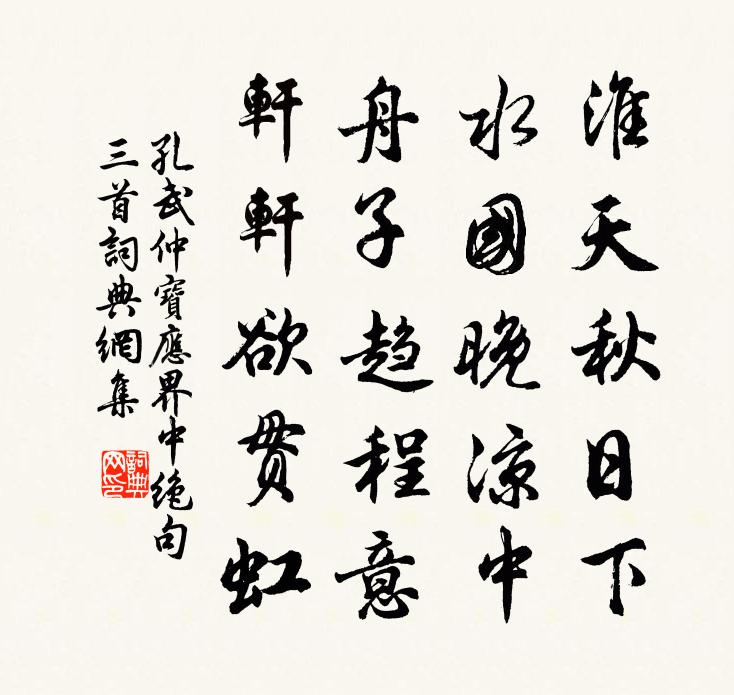 淮天秋日下
水國晚凉中
舟子趋程意
軒軒欲贯虹
孔武仲寶應界中絶句
三首詞典網集
詞典网印